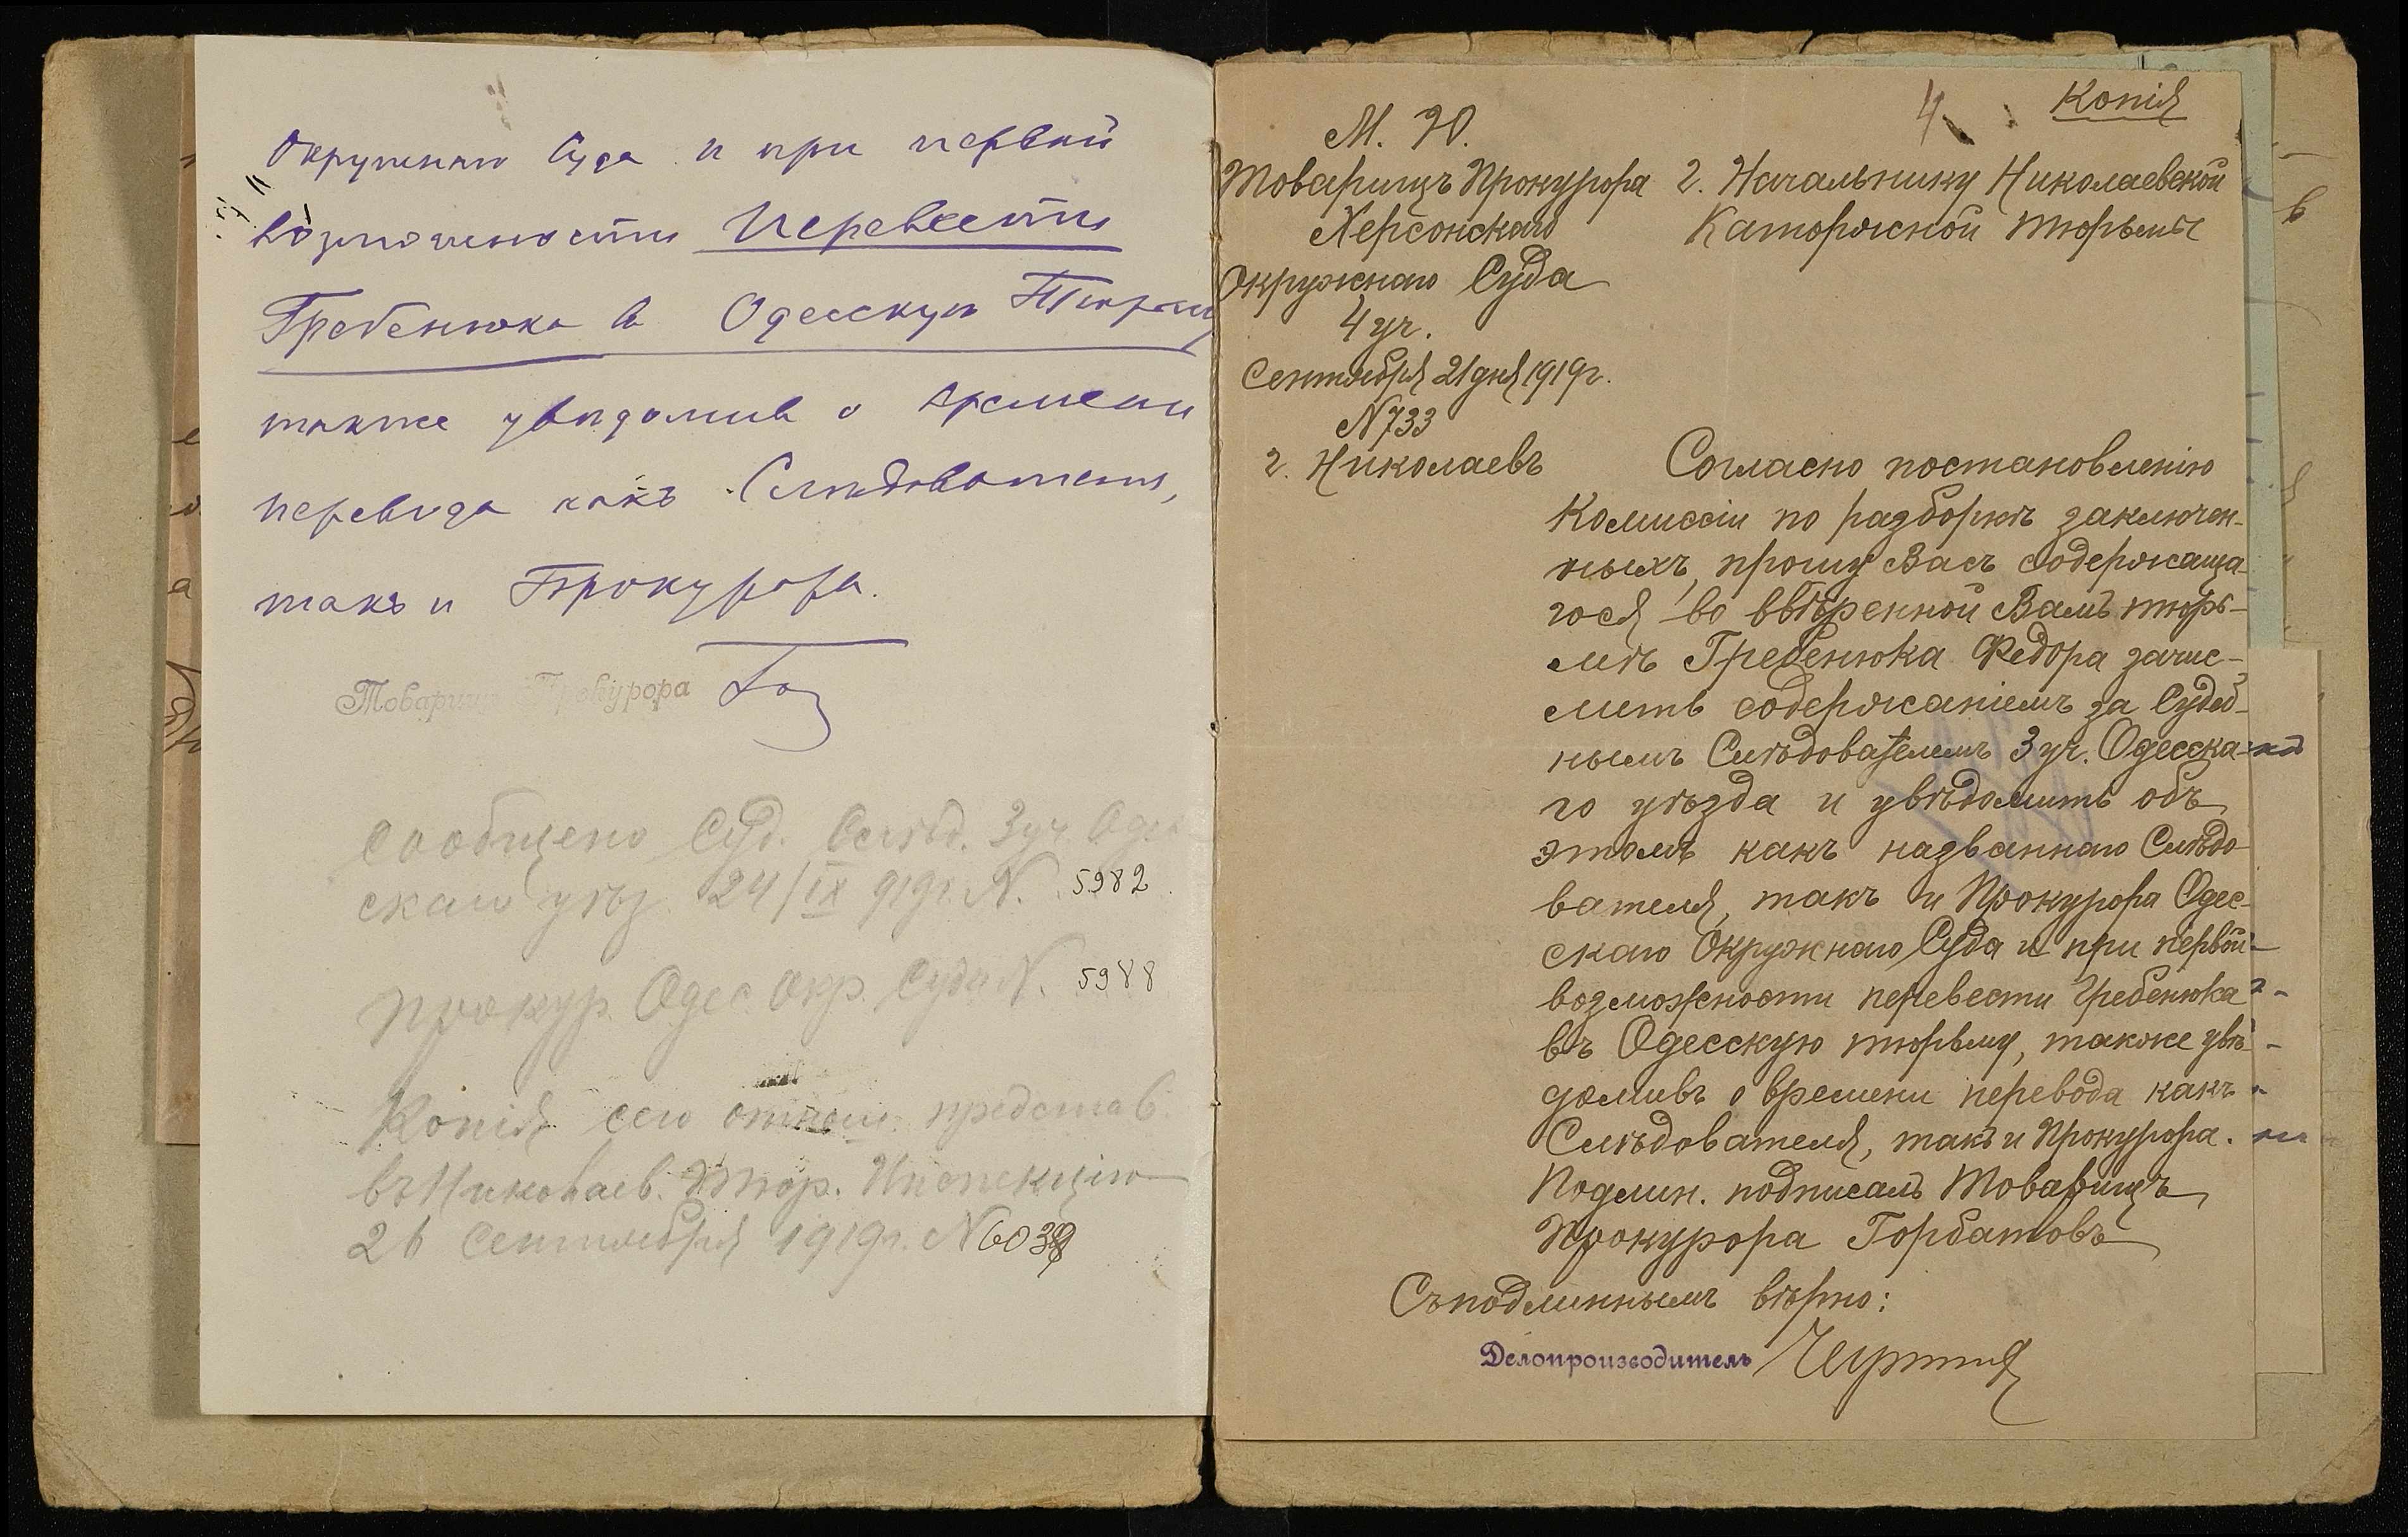 Окружнаго Суда и при первой
возможности перевести
Гребенюка в Одесскую Тюрьму
также уведомив о времени
перевода какъ Следователя,
такъ и Прокурора.
Товарищъ Прокурора
Сообщено Суд. Слѣд. 3 уч. Одес-
скаго уѣз. 24/IX 919г. N. 5982
Прокур. Одес. Окр. Суда N. 5988
Копія сего отнош. представ.
въ Николаев. Тюр. Инспекцію
26 Сентября 1919г. N 6039
4
Копія
М. Ю.
Товарищъ Прокурора
Херсонскаго
Окружнаго Суда
4 уч.
Сентября 21 дня 1919г.
N 733
г. Николаевъ
Г. Начальнику Николаевской
Каторжной тюрьмы
Согласно постановленію
Комиссіи по разборкѣ заключен-
ныхъ, прошу Васъ содержаща-
гося во ввѣренной Вамъ тюрь-
мѣ Гребенюка Федора зачис-
лить содержаніемъ за Судеб-
нымъ Слѣдователемъ 3 уч. Одесска-
го уѣзда и увѣдомить объ
этомъ какъ названнаго Слѣдо-
вателя, такъ и Прокурора Одес-
скаго Окружнаго Суда и при первой
возможности перевести Гребенюка
въ Одесскую тюрьму, также увѣ-
домивъ о времени перевода какъ
Слѣдователя, такъ и Прокурора.
Подлин. подписалъ Товарищъ
Прокурора Горбатовъ
Съ подлиннымъ вѣрно:
Делопроизводитель